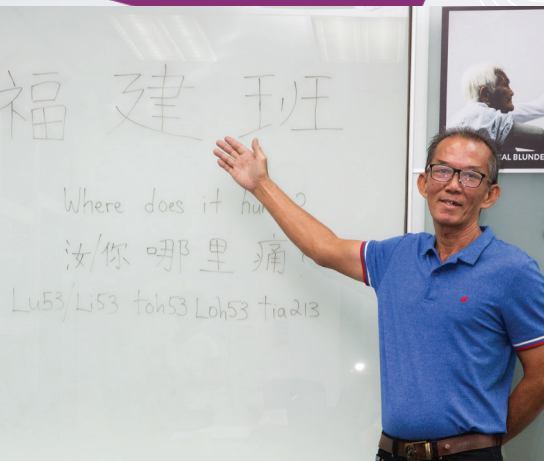 福建班
Where does it hu ?
汝/你 哪里痛
Lu53/Li53 toh53 Loh53 tia213
CAL BLUNDE